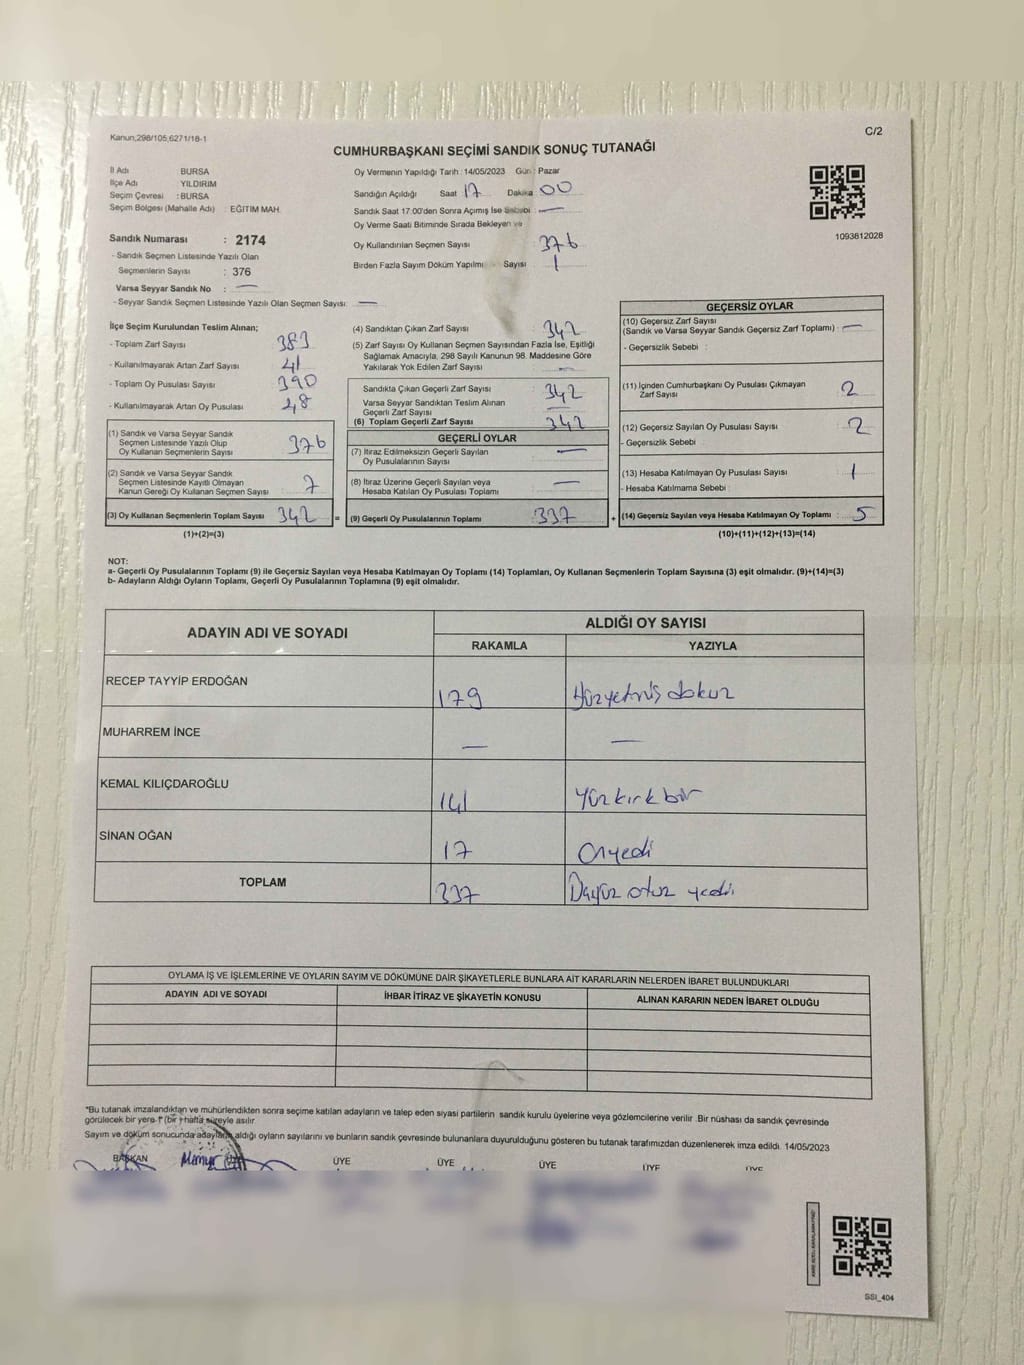 Kanun;298/105;6271/18-1
C/2
CUMHURBAŞKANI SEÇİMİ SANDIK SONUÇ TUTANAĞI
İl Adı BURSA
İlçe Adı YILDIRIM
Seçim Çevresi : BURSA
Seçim Bölgesi (Mahalle Adı) : EĞİTİM MAH.
Sandık Numarası : 2174
- Sandık Seçmen Listesinde Yazılı Olan
Seçmenlerin Sayısı : 376
Varsa Seyyar Sandık No : —
- Seyyar Sandık Seçmen Listesinde Yazılı Olan Seçmen Sayısı: —
Oy Vermenin Yapıldığı Tarih : 14/05/2023 Gün : Pazar
Sandığın Açıldığı Saat 17 Dakika 00
Sandık Saat 17:00'den Sonra Açımış İse Sebebi : —
Oy Verme Saati Bitiminde Sırada Bekleyen ve
Oy Kullandırılan Seçmen Sayısı 376
Birden Fazla Sayım Döküm Yapılmış Sayısı 1
1093612028
İlçe Seçim Kurulundan Teslim Alınan;
- Toplam Zarf Sayısı 383
- Kullanılmayarak Artan Zarf Sayısı 41
- Toplam Oy Pusulası Sayısı 390
- Kullanılmayarak Artan Oy Pusulası 48
(1) Sandık ve Varsa Seyyar Sandık
Seçmen Listesinde Yazılı Olup
Oy Kullanan Seçmenlerin Sayısı 376
(2) Sandık ve Varsa Seyyar Sandık
Seçmen Listesinde Kayıtlı Olmayan
Kanun Gereği Oy Kullanan Seçmen Sayısı 7
(3) Oy Kullanan Seçmenlerin Toplam Sayısı 342 =
(1)+(2)=(3)
(4) Sandıktan Çıkan Zarf Sayısı 342
(5) Zarf Sayısı Oy Kullanan Seçmen Sayısından Fazla İse, Eşitliği
Sağlamak Amacıyla, 298 Sayılı Kanunun 98. Maddesine Göre
Yakılarak Yok Edilen Zarf Sayısı —
Sandıkta Çıkan Geçerli Zarf Sayısı 342
Varsa Seyyar Sandıktan Teslim Alınan
Geçerli Zarf Sayısı —
(6) Toplam Geçerli Zarf Sayısı 342
GEÇERLİ OYLAR
(7) İtiraz Edilmeksizin Geçerli Sayılan
Oy Pusulalarının Sayısı —
(8) İtiraz Üzerine Geçerli Sayılan veya
Hesaba Katılan Oy Pusulası Toplamı —
(9) Geçerli Oy Pusulalarının Toplamı 337 +
GEÇERSİZ OYLAR
(10) Geçersiz Zarf Sayısı
(Sandık ve Varsa Seyyar Sandık Geçersiz Zarf Toplamı) : —
- Geçersizlik Sebebi :
(11) İçinden Cumhurbaşkanı Oy Pusulası Çıkmayan
Zarf Sayısı 2
(12) Geçersiz Sayılan Oy Pusulası Sayısı 2
- Geçersizlik Sebebi
(13) Hesaba Katılmayan Oy Pusulası Sayısı 1
- Hesaba Katılmama Sebebi :
(14) Geçersiz Sayılan veya Hesaba Katılmayan Oy Toplamı : 5
(10)+(11)+(12)+(13)=(14)
NOT:
a- Geçerli Oy Pusulalarının Toplamı (9) ile Geçersiz Sayılan veya Hesaba Katılmayan Oy Toplamı (14) Toplamları, Oy Kullanan Seçmenlerin Toplam Sayısına (3) eşit olmalıdır. (9)+(14)=(3)
b- Adayların Aldığı Oyların Toplamı, Geçerli Oy Pusulalarının Toplamına (9) eşit olmalıdır.
ADAYIN ADI VE SOYADI
ALDIĞI OY SAYISI
RAKAMLA YAZIYLA
RECEP TAYYİP ERDOĞAN 179 Yüzyetmiş dokuz
MUHARREM İNCE — —
KEMAL KILIÇDAROĞLU 141 Yüzkırkbir
SİNAN OĞAN 17 Onyedi
TOPLAM 337 otuz yedi
OYLAMA İŞ VE İŞLEMLERİNE VE OYLARIN SAYIM VE DÖKÜMÜNE DAİR ŞİKAYETLERLE BUNLARA AİT KARARLARIN NELERDEN İBARET BULUNDUKLARI
ADAYIN ADI VE SOYADI İHBAR İTİRAZ VE ŞİKAYETİN KONUSU ALINAN KARARIN NEDEN İBARET OLDUĞU
*Bu tutanak imzalandıktan ve mühürlendikten sonra seçime katılan adayların ve talep eden siyasi partilerin sandık kurulu üyelerine veya gözlemcilerine verilir .Bir nüshası da sandık çevresinde
görülecek bir yere 1 (bir ) hafta süreyle asılır
Sayım ve döküm sonucunda adayların aldığı oyların sayılarını ve bunların sandık çevresinde bulunanlara duyurulduğunu gösteren bu tutanak tarafımızdan düzenlenerek imza edildi. 14/05/2023
BAŞKAN Memur ÜYE ÜYE ÜYE ÜYE ÜYE
SSI_404